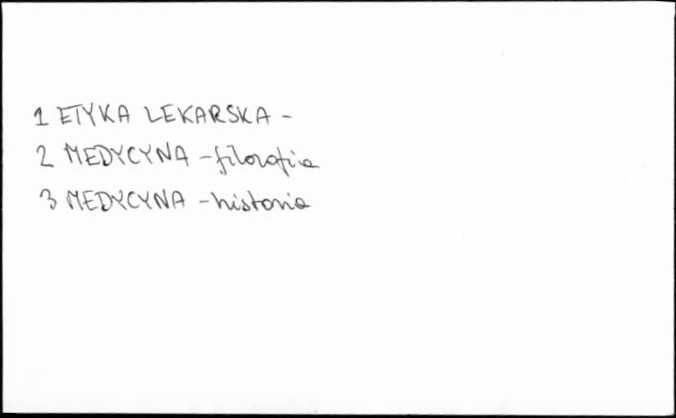 1 ETYKA LEKARSKA -
2 MEDYCYNA - filozofia
3 MEDYCYNA - historia